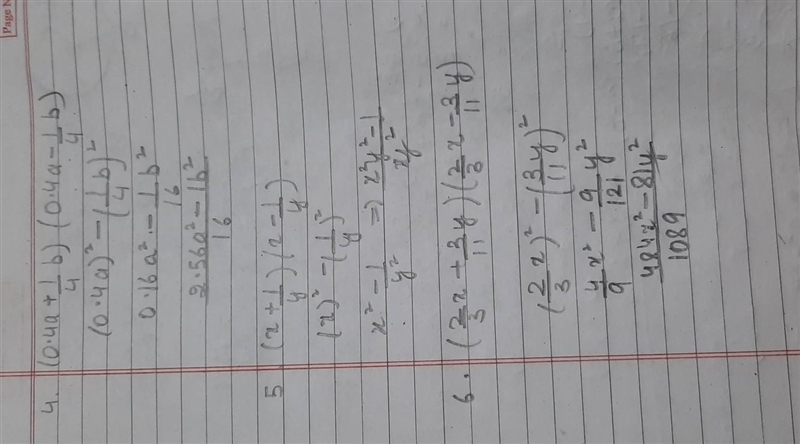 Page N
4. (0.4a + 1/4 b) (0.4a - 1/4 b)
(0.4a)² - (1/4 b)²
0.16a² - 1/16 b²
2.56a² - 1b² / 16
5. (x + 1/y) (x - 1/y)
(x)² - (1/y)²
x² - 1/y² => x²y² - 1 / y²
6. (2/3 x + 3/11 y) (2/3 x - 3/11 y)
(2/3 x)² - (3/11 y)²
4/9 x² - 9/121 y²
484x² - 81y² / 1089